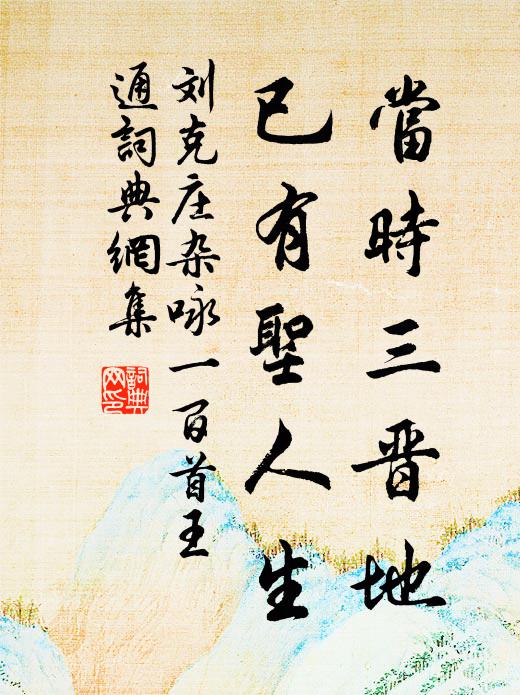 當時三晋地
已有聖人生
刘克庄杂咏一百首王
通詞典網集
詞典網印